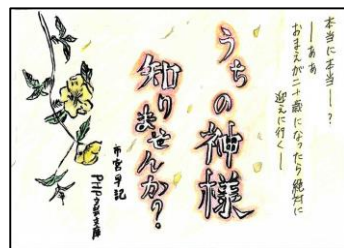 本当に本当―?
―ああ
おまえが二十歳になったら絶対に
迎えに行く―
うちの神様
知りませんか?
市宮早記
PHP文芸文庫